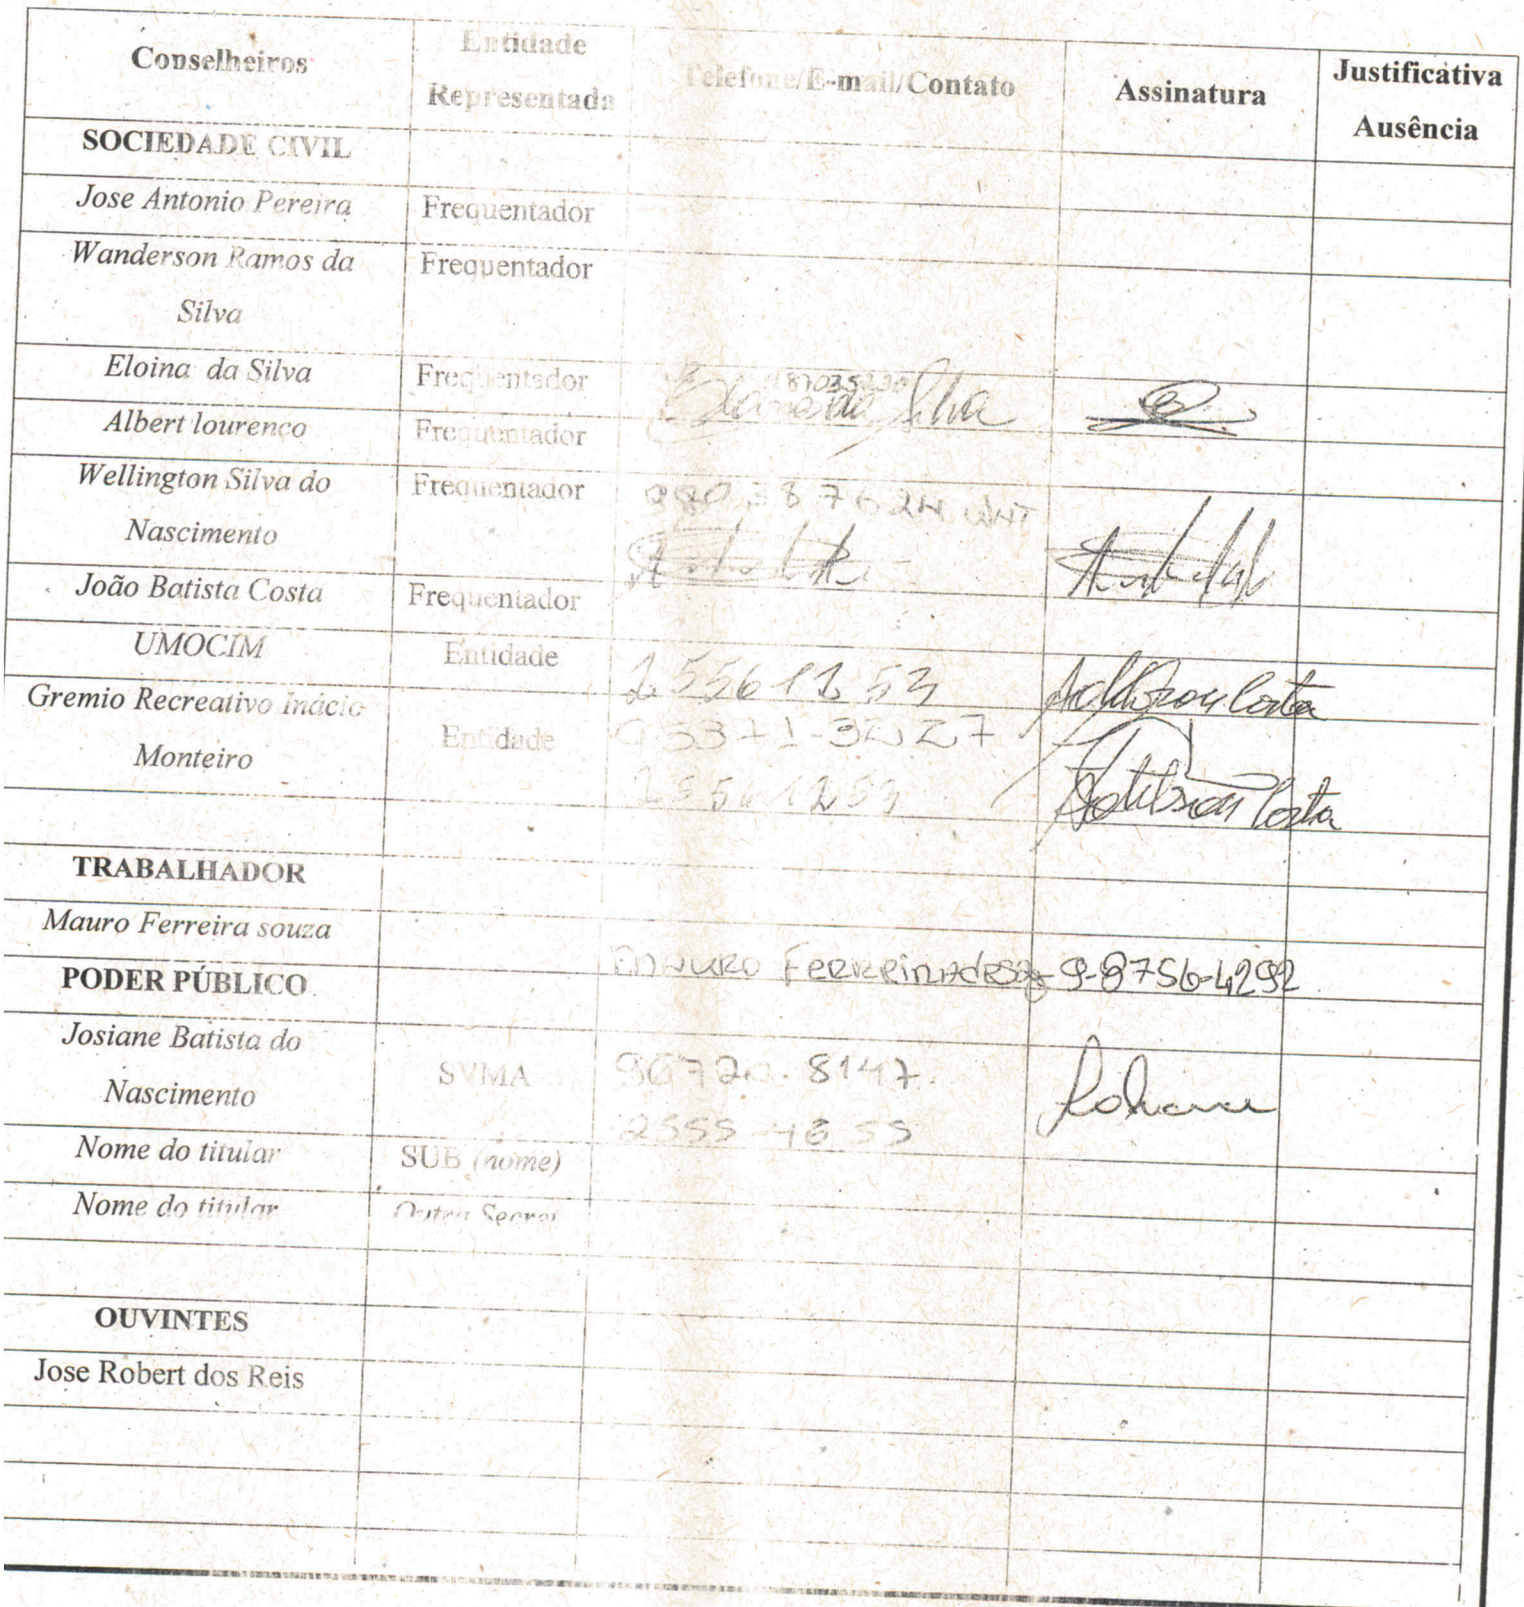 Conselheiros
Entidade
Representada
Telefone/E-mail/Contato
Assinatura
Justificativa
Ausência
SOCIEDADE CIVIL
Jose Antonio Pereira Frequentador
Wanderson Ramos da Frequentador
Silva
Eloina da Silva Frequentador
da Silva
Albert lourenco Frequentador
Wellington Silva do Frequentador
Nascimento
João Batista Costa Frequentador
UMOCIM Entidade 25561253 Costa
Gremio Recreativo Inácio
Monteiro Entidade
25561253 Costa
TRABALHADOR
Mauro Ferreira souza
9-8756-4292
PODER PÚBLICO
Josiane Batista do
Nascimento SVMA 96720-8147
2555-4655
Nome do titular SUB (nome)
Nome do titular Outra Secret
OUVINTES
Jose Robert dos Reis